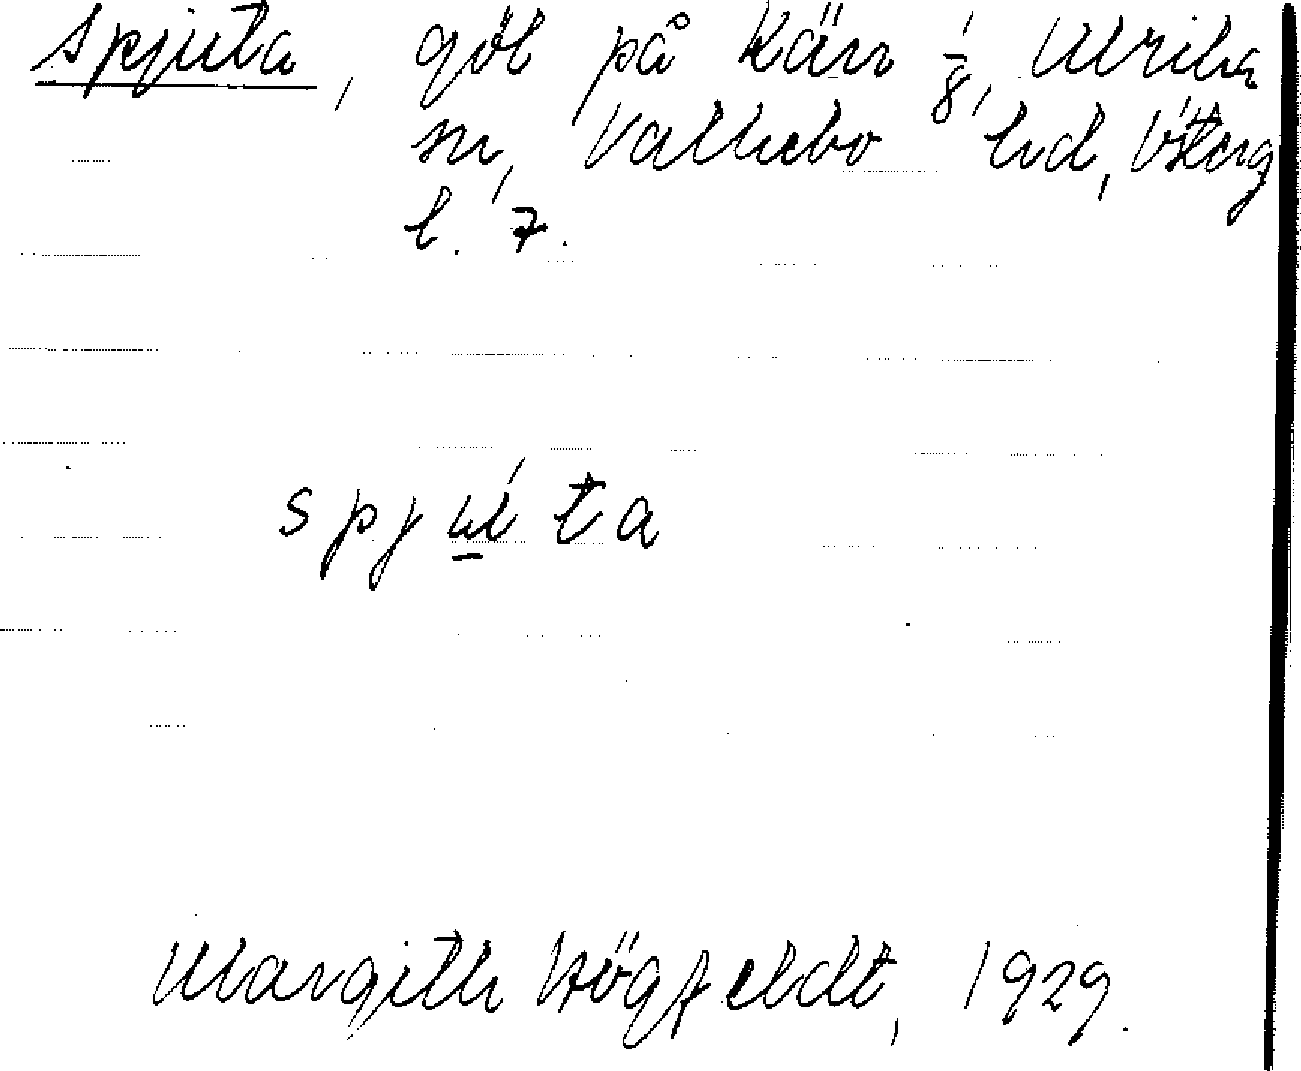 spjuta, göl på Kärr 1/8, Ulrika
sn, Valkebo hd, Österg
l. 7.
spjú̲ta
Margith Högfeldt, 1929.